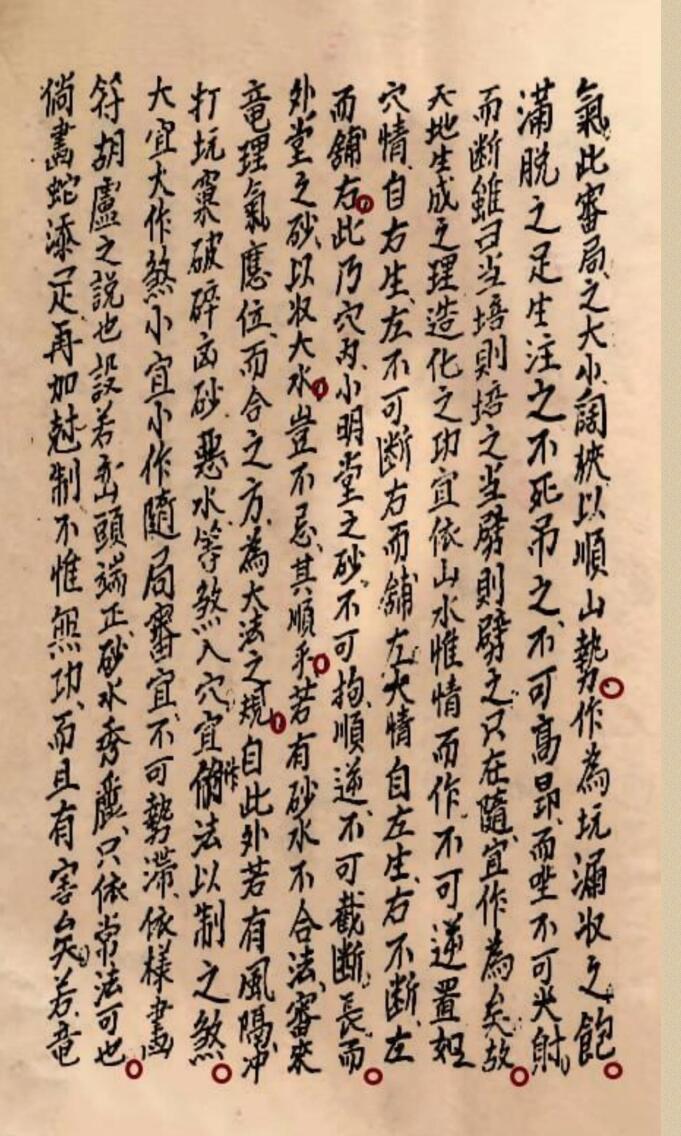 氣此審局之大小闊狹以順山勢作為坑漏收之飽
滿脫之足生注之不死吊之不可高昂而唑不可尖射
而断雖曰当培則培之当劈則劈之只在隨宜作為矣故
天地生成之理造化之功宜依山水惟情而作不可逆置如
穴情自右生左不可断右而舖左穴情自左生右不断左
而舖右此乃穴内小明堂之砂不可拘順逆不可截断長而
外堂之砂以收大水豈不忌其順乎若有砂水不合法審來
竜理氣應位而合之方為大法之規自此外若有風隔冲
打坑窠破碎凶砂惡水等煞入穴宜作法以制之煞
大宜大作煞小宜小作隨局審宜不可勢滞依樣畵
符胡盧之説也設若巒頭端正砂水秀麗只依常法可也
倘畵蛇添足再加尅制不惟無功而且有害矣若竜